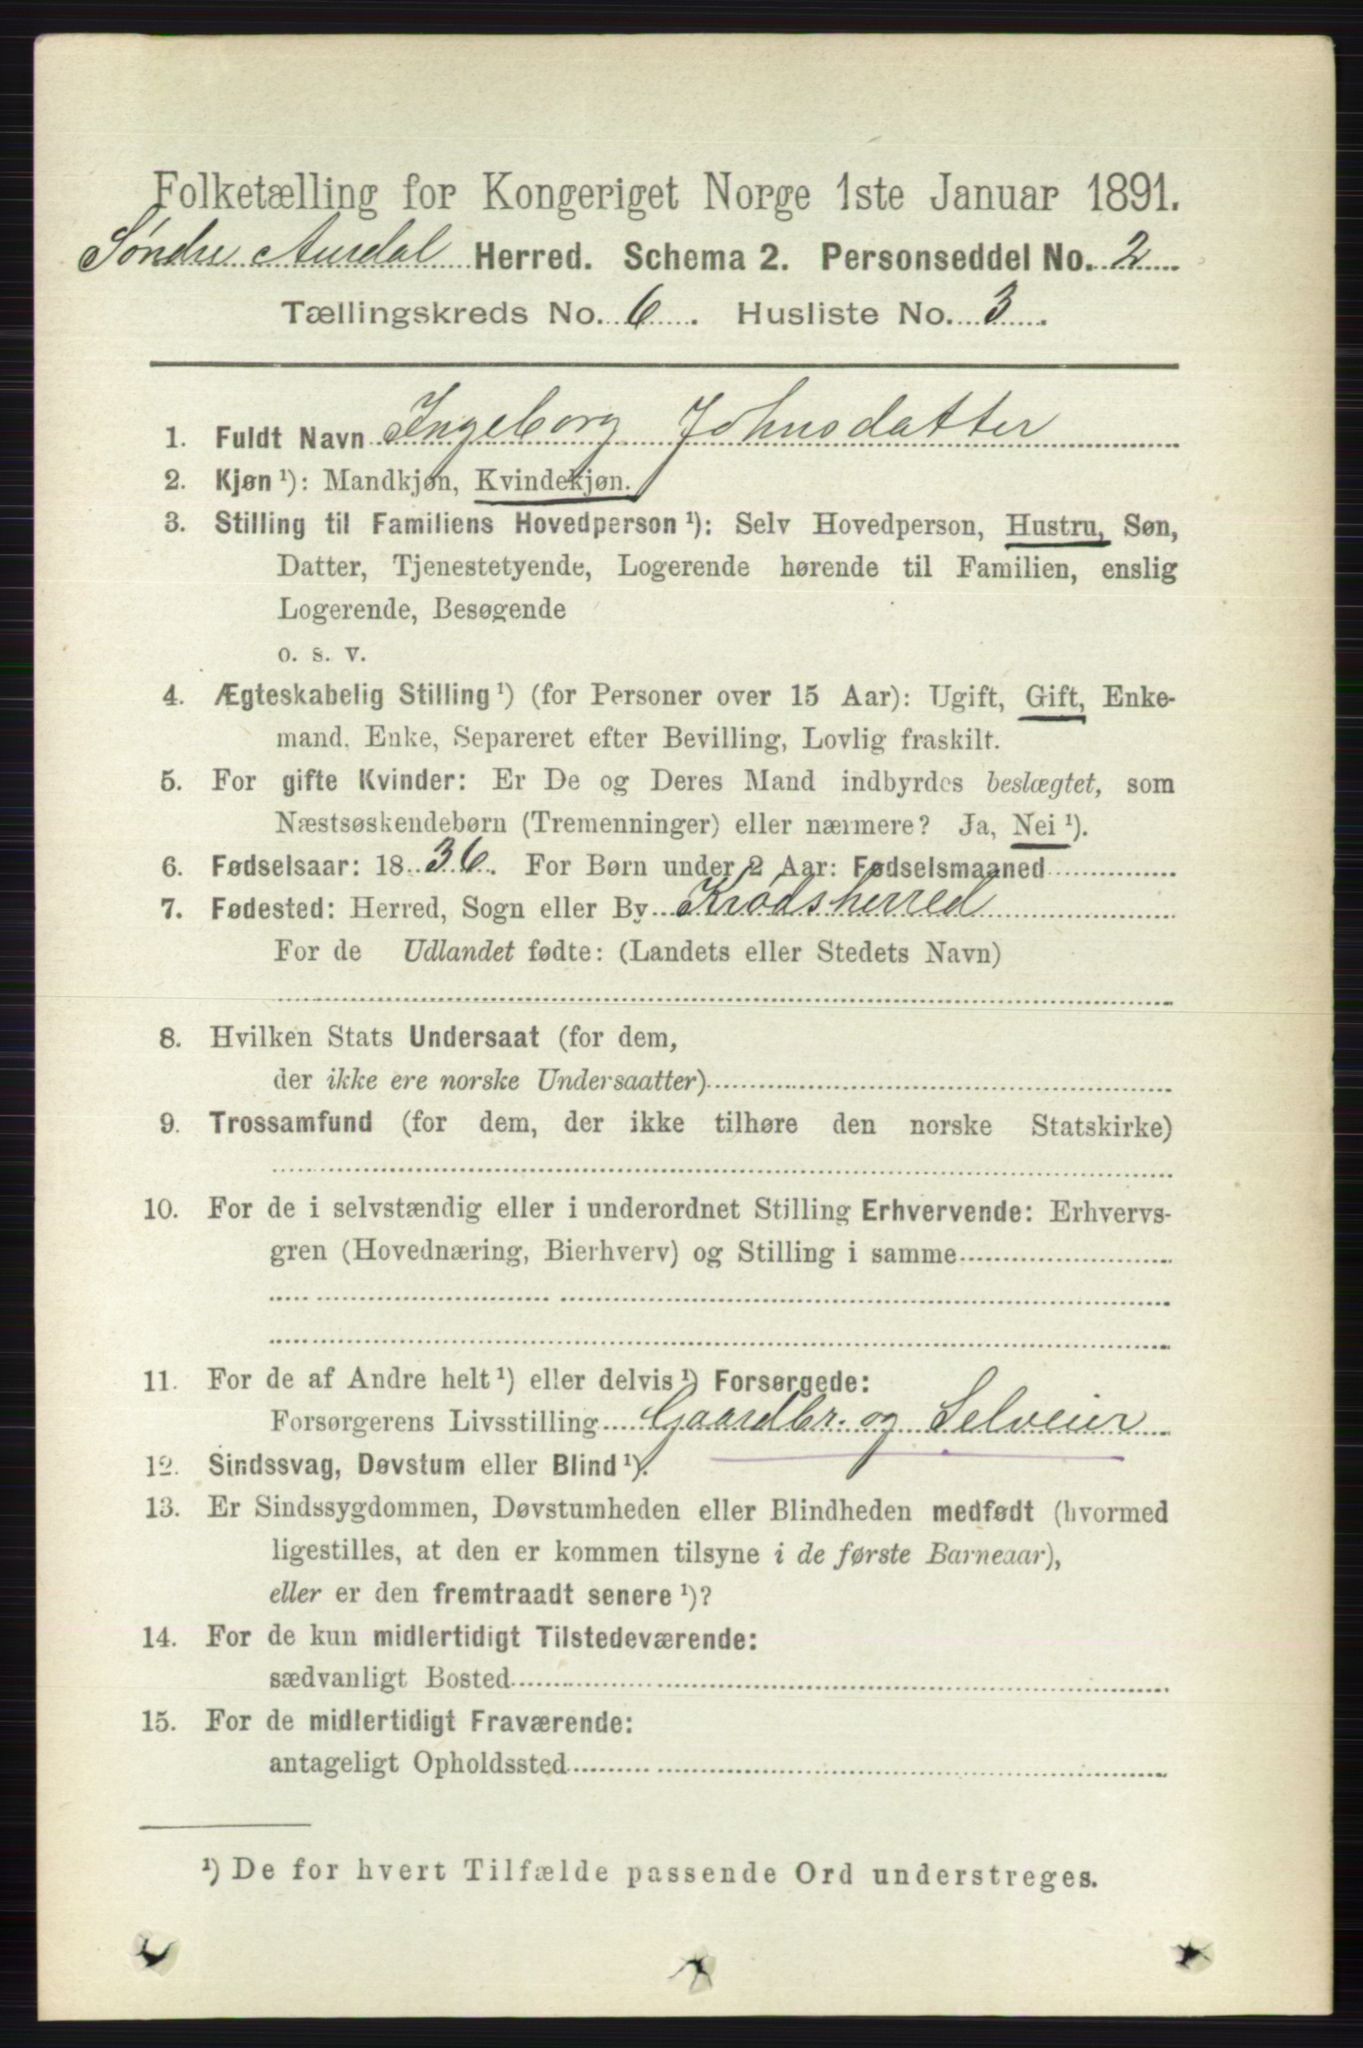 Folketælling for Kongeriget Norge 1ste Januar 1891.
Søndre Aurdal Herred. Schema 2. Personseddel No. 2
Tællingskreds No. 6. Husliste No. 3.
1. Fuldt Navn Ingeborg Johnsdatter
2. Kjøn ¹): Mandkjøn, Kvindekjøn.
3. Stilling til Familiens Hovedperson ¹): Selv Hovedperson, Hustru, Søn,
Datter, Tjenestetyende, Logerende hørende til Familien, enslig
Logerende, Besøgende
o. s. v.
4. Ægteskabelig Stilling ¹) (for Personer over 15 Aar): Ugift, Gift, Enke-
mand, Enke, Separeret efter Bevilling, Lovlig fraskilt.
5. For gifte Kvinder: Er De og Deres Mand indbyrdes beslægtet, som
Næstsøskendebørn (Tremenninger) eller nærmere? Ja, Nei ¹).
6. Fødselsaar: 1836. For Børn under 2 Aar: Fødselsmaaned
7. Fødested: Herred, Sogn eller By Krødsherred
For de Udlandet fødte: (Landets eller Stedets Navn)
8. Hvilken Stats Undersaat (for dem,
der ikke ere norske Undersaatter)
9. Trossamfund (for dem, der ikke tilhøre den norske Statskirke)
10. For de i selvstændig eller i underordnet Stilling Erhvervende: Erhvervs-
gren (Hovednæring, Bierhverv) og Stilling i samme
11. For de af Andre helt ¹) eller delvis ¹) Forsørgede:
Forsørgerens Livsstilling Gaardbr. og Selveier
12. Sindssvag, Døvstum eller Blind ¹).
13. Er Sindssygdommen, Døvstumheden eller Blindheden medfødt (hvormed
ligestilles, at den er kommen tilsyne i de første Barneaar),
eller er den fremtraadt senere ¹)?
14. For de kun midlertidigt Tilstedeværende:
sædvanligt Bosted
15. For de midlertidigt Fraværende:
antageligt Opholdssted
¹) De for hvert Tilfælde passende Ord understreges.